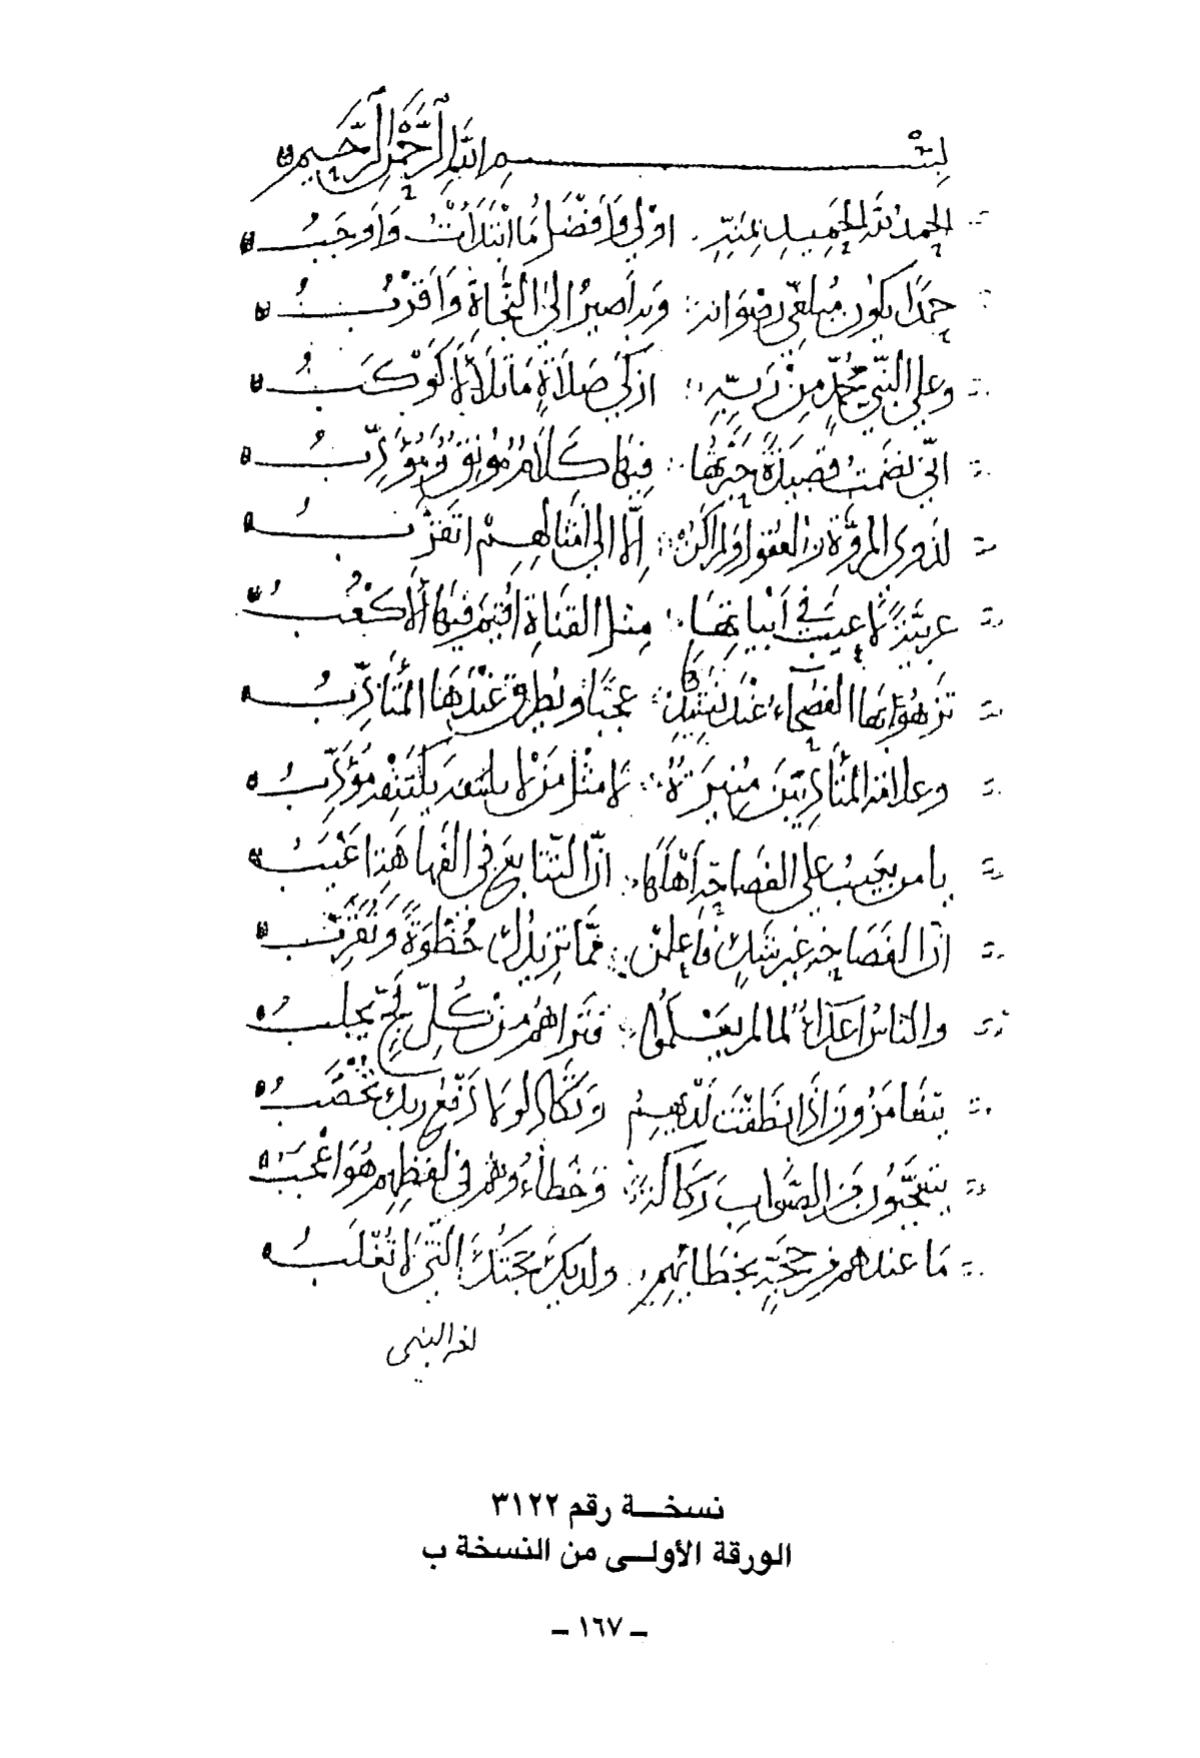 بسم الله الرحمن الرحيم
الحمد لله الحميد بمنه أولى وأفضل ما ابتدأت وأوجب
حمدا يكون مبلغي رضوانه وبه أصير إلى النجاة وأقرب
وعلى النبي محمد من ربه أزكى صلاة ما تلألأ كوكب
إني نضمت قصيدة حبرتها فيها كلام مونق ومؤدب
لذوي المروة والعقول ولم أكن إلا إلى أمثالهم أتقرب
عربية لا عيب في أبياتها مثل القناة أقيم فيها الأكعب
تزهو بها الفصحاء عند نشيدها عجبا ويطرق عندها المتأدب
وعلامة المتأدبين منيرة لا مثل من لا يلتفه مؤدب
يا من يعيب على الفصاحة أهلها إن التتابع في الفهاهة أعيب
إن الفصاحة غير شك فاعلمن مما تزيدك حظوة وتقرب
والناس أعداء لما لم يعلموا فتراهم من كل فج يجلب
يتغامزون إذا نطقت لديهم وتكاد لولا دفع ربك تحصب
يتعجبون من الصواب ركاكة وخطاءهم في لفظهم هو أعجب
ما عندهم من حجة بخطائهم ولديك حجتك التي لا تغلب
نسخة رقم ٣١٢٢
الورقة الأولى من النسخة ب
– ١٦٧ –